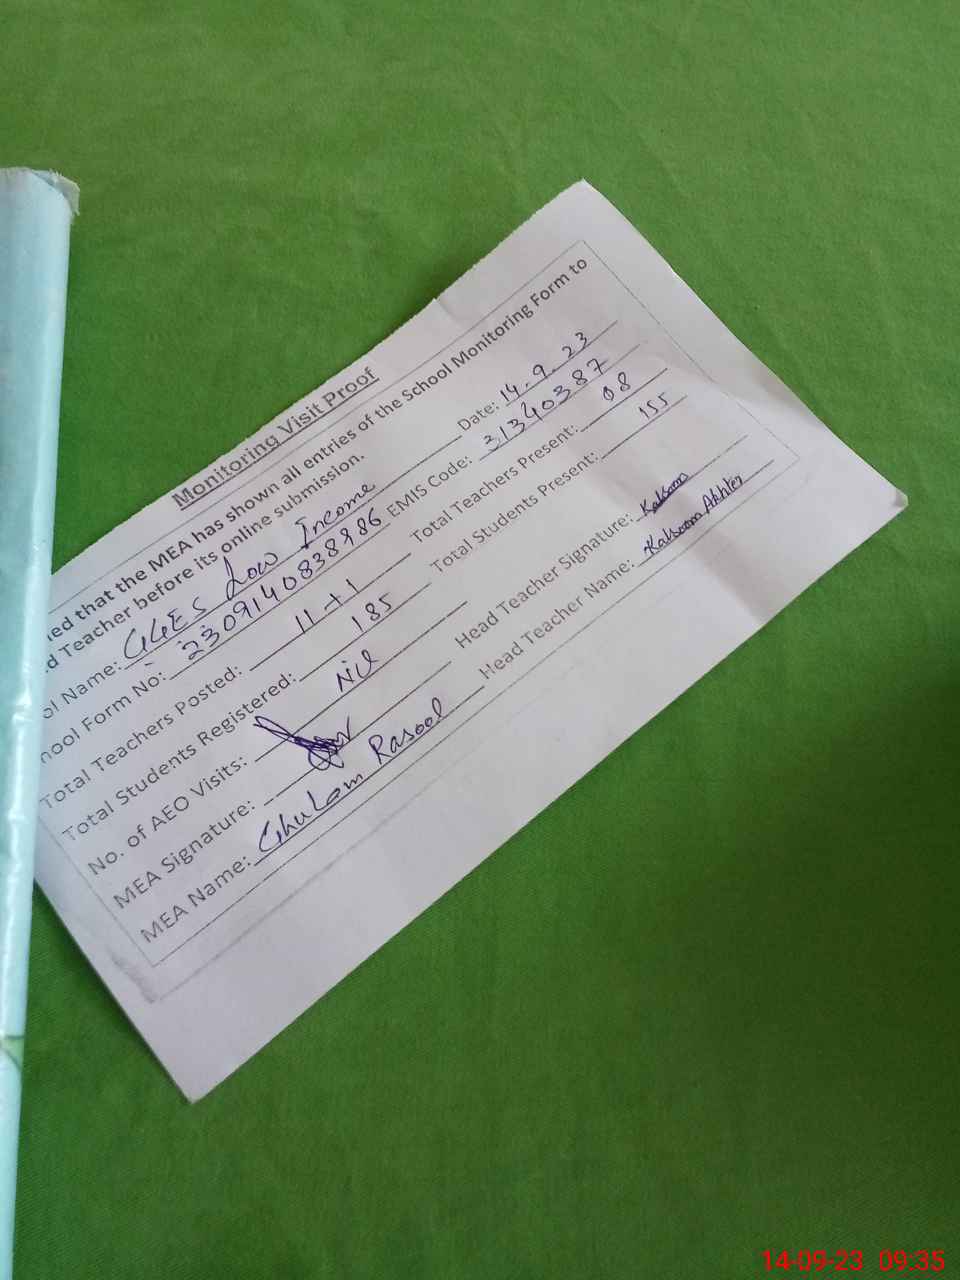 Monitoring Visit Proof
ied that the MEA has shown all entries of the School Monitoring Form to
d Teacher before its online submission.
ol Name: GGES Low Income Date: 14.9.23
hool Form No: 2309140838986 EMIS Code: 31340387
Total Teachers Posted: 11+1 Total Teachers Present: 08
Total Students Registered: 185 Total Students Present: 155
No. of AEO Visits: Nil
MEA Signature: Head Teacher Signature: Kalsoom
MEA Name: Ghulam Rasool Head Teacher Name: Kalsoom Akhter
14-09-23 09:35